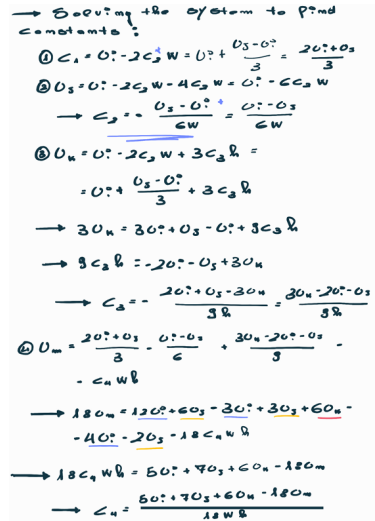 → Solving the system to find
constants:
① C₁ = Uᵢ - 2C₂W = Uᵢ + (U_s - Uᵢ)/3 = (2Uᵢ + U_s)/3
② U_s = Uᵢ - 2C₂W - 4C₂W = Uᵢ - 6C₂W
→ C₂ = - (U_s - Uᵢ)/6W = (Uᵢ - U_s)/6W
③ Uₖ = Uᵢ - 2C₂W + 3C₃h =
= Uᵢ + (U_s - Uᵢ)/3 + 3C₃h
→ 3Uₖ = 3Uᵢ + U_s - Uᵢ + 9C₃h
→ 9C₃h = -2Uᵢ - U_s + 3Uₖ
→ C₃ = - (2Uᵢ + U_s - 3Uₖ)/9h = (3Uₖ - 2Uᵢ - U_s)/9h
④ Uₘ = (2Uᵢ + U_s)/3 - (Uᵢ - U_s)/6 + (3Uₖ - 2Uᵢ - U_s)/9 -
- C₄Wh
→ 18Uₘ = 12Uᵢ + 6U_s - 3Uᵢ + 3U_s + 6Uₖ -
- 4Uᵢ - 2U_s - 18C₄Wh
→ 18C₄Wh = 5Uᵢ + 7U_s + 6Uₖ - 18Uₘ
→ C₄ = (5Uᵢ + 7U_s + 6Uₖ - 18Uₘ)/18Wh